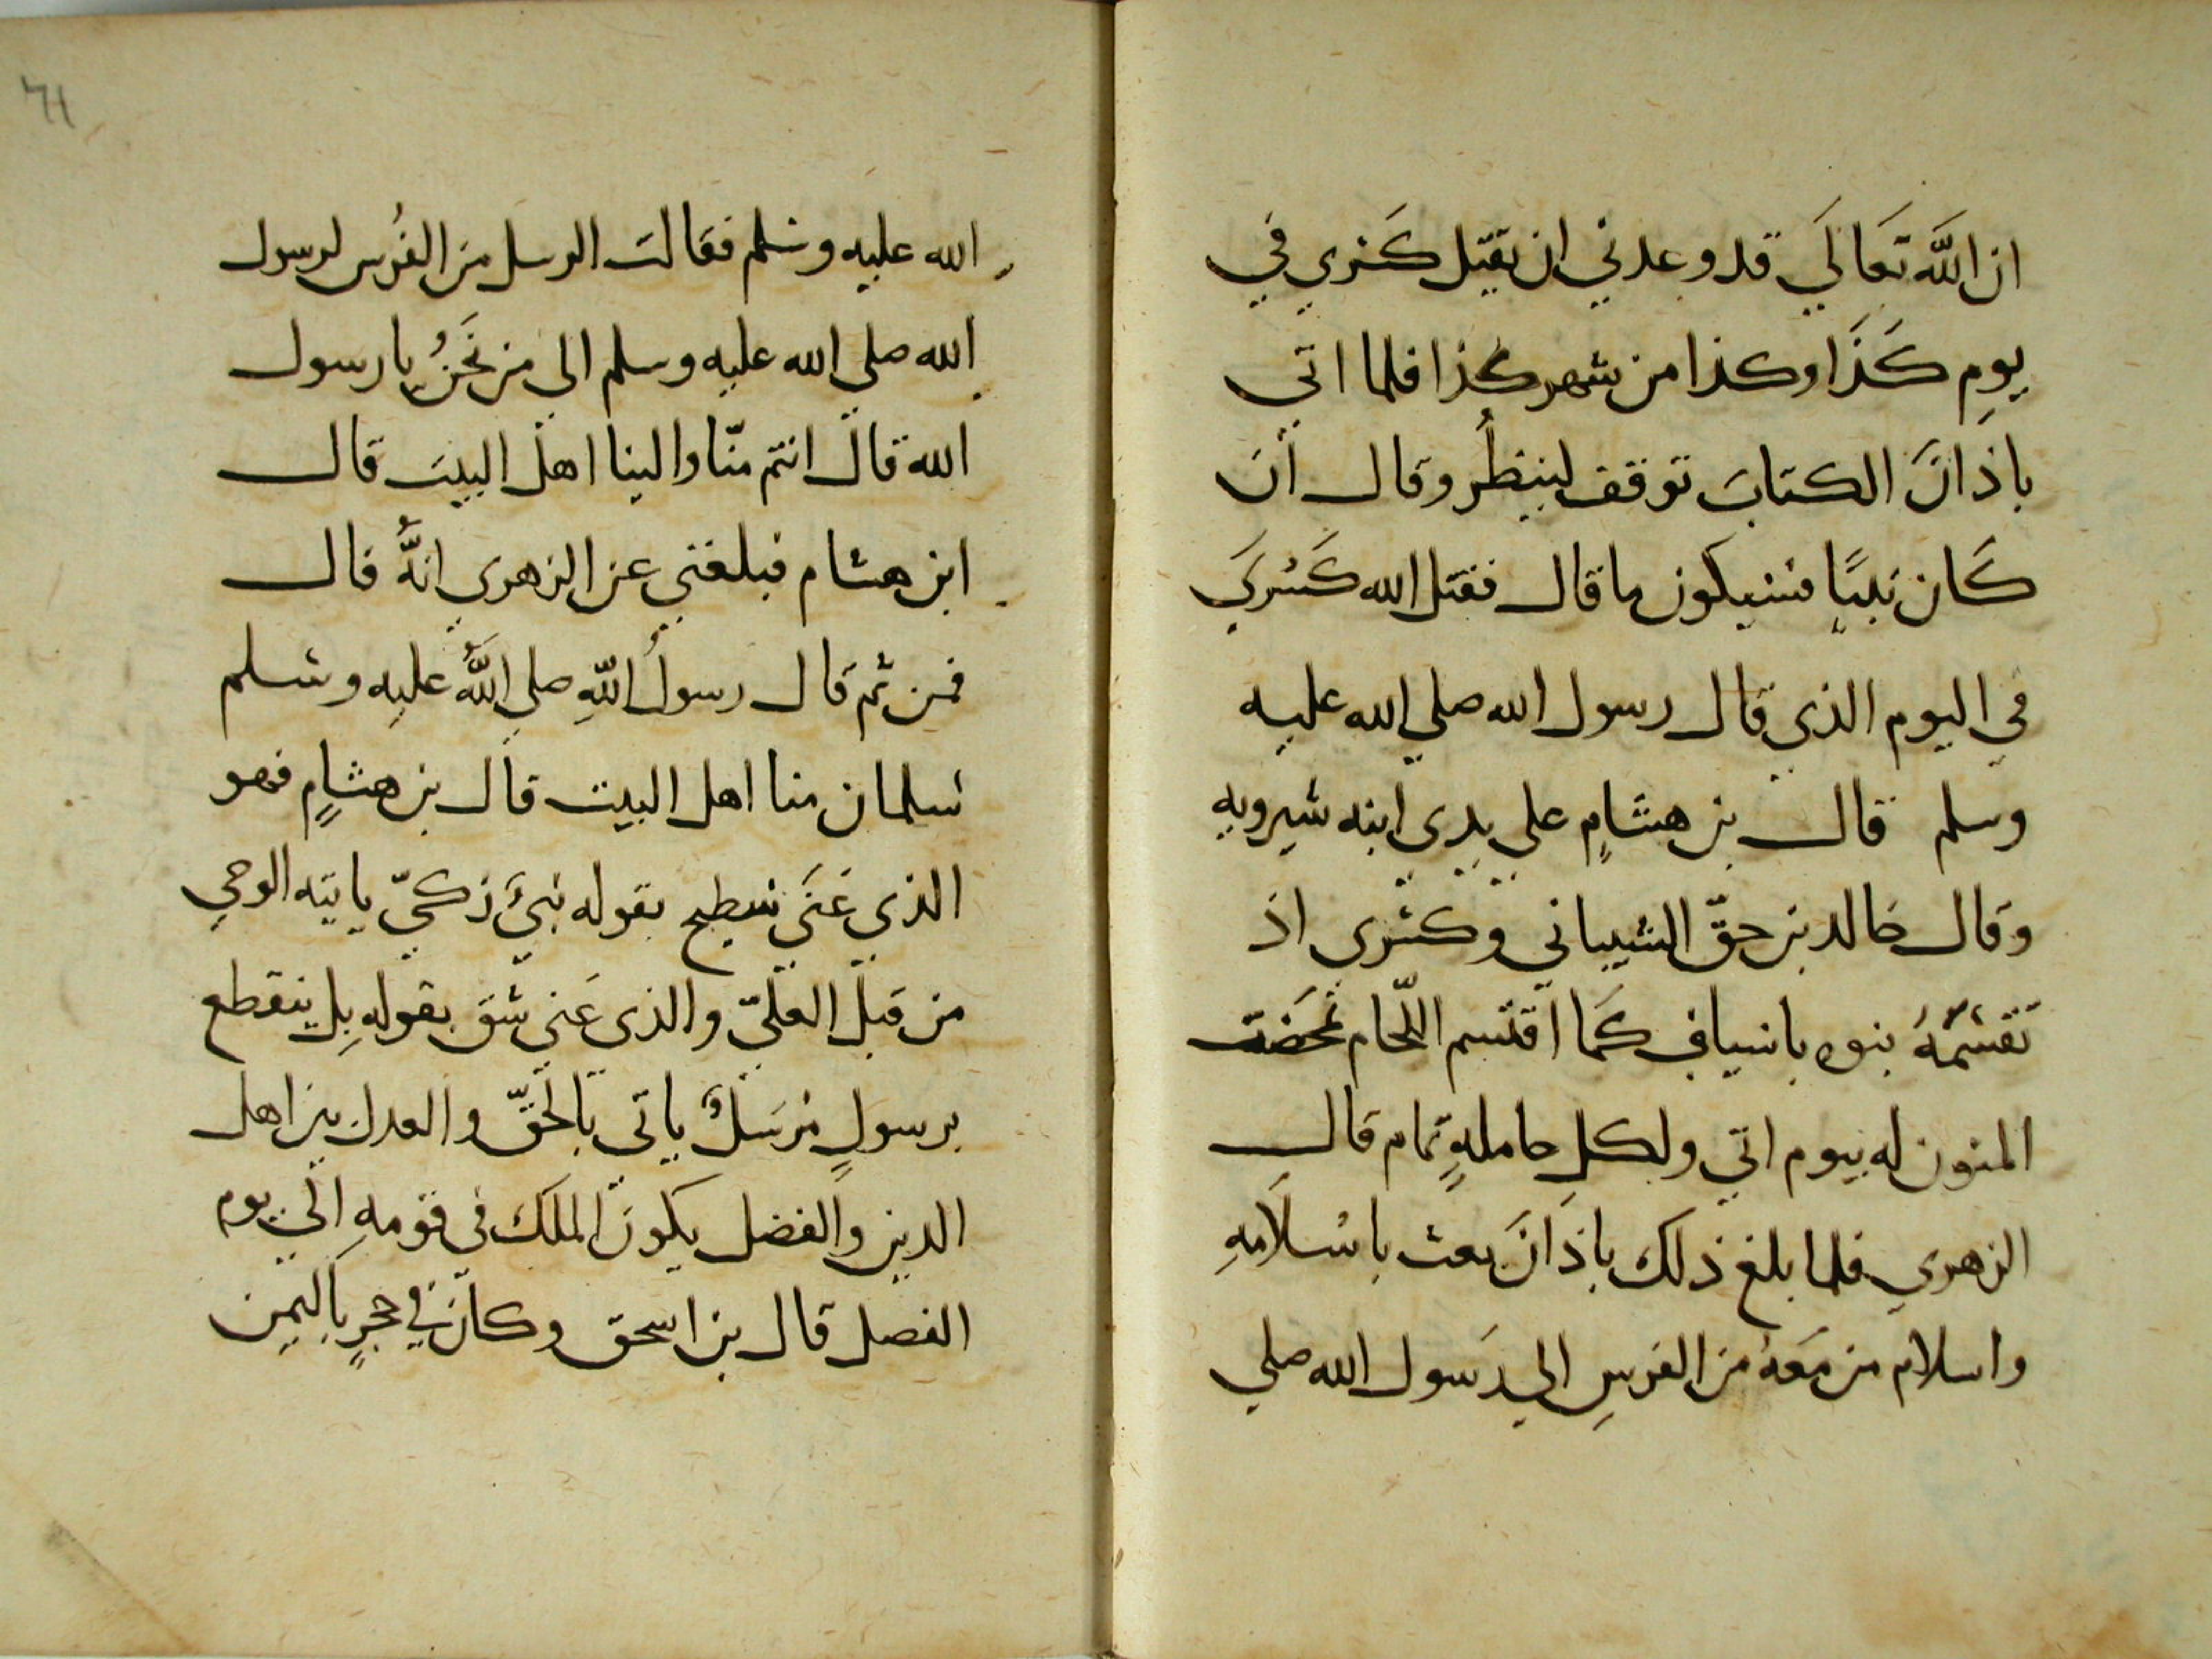 ان اللَّه تَعَالَي قد وعدني ان يقتل كسري في
يومِ كَذَا وكذا من شهر كذا فلما اتي
باذانَ الكتابَ توقف لينظُر وقال ان
كَان نبيًا فسيكون ما قال فقتل الله كَسْرَي
في اليوم الذي قال رسول الله صلي الله عليه
وسلم قال بن هشامٍ علي يدي ابنه شيرويه
وقال خالد بن حقّ الشيباني وكسْري اذ
تقسَّمَهُ بنوه باسيافٍ كَما اقتسم اللّحام تمخضت
المنون له بيوم اتي ولكلِ حاملةٍ تمام قال
الزهري فلما بلغ ذلك باذَانَ بعث باسْلَامهِ
واسلام من مَعَهُ من الفرسِ الي رَسول الله صلي
الله عليه وسلم فقالت الرسل من الفُرس لرسول
الله صلي الله عليه وسلم الي من نَحنُ يا رسول
الله قال انتم منّا والينا اهل البيت قال
ابن هشام فبلغني عن الزهري انهُ قال
فمن ثم قال رسولُ اللّهِ صلي اللَّهُ عليه وسلم
سلمان منا اهل البيت قال بن هشامٍ فهو
الذي عَنَي سطيح بقوله نبيٌ زكيّ ياتيه الوحي
من قبل العليّ والذي عَني شق بقولهِ بل ينقطع
برسولٍ مُرسَلٍ ياتي بالحقّ والعدل بين اهل
الدين والفضل يكون الملك في قومهِ الي يوم
الفصل قال بن اسحق وكان في حجرٍ باليمن
٦١